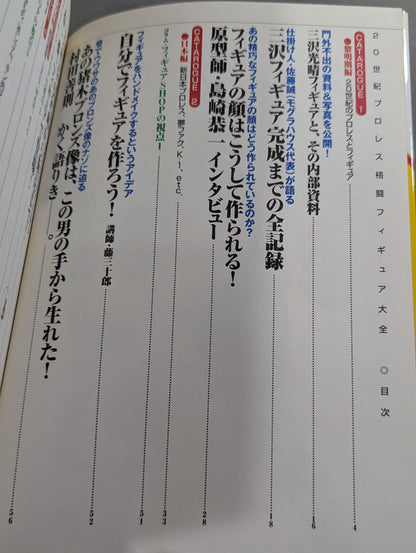 20世紀プロレス格闘フィギュア大全 ◎ 目次
CATAROGUE 1
●黎明期編 20世紀のプロレスとフィギュア……4
門外不出の資料&写真を公開!
三沢光晴フィギュアと、その内部資料……16
仕掛け人・佐藤誠(モグラハウス代表)が語る
三沢フィギュア完成までの全記録……18
あの精巧なフィギュアの顔はどう作られているのか?
フィギュアの顔はこうして作られる!
原型師・島崎恭一インタビュー……28
CATAROGUE 2
●日本編 新日本プロレス、夢ファク、K-1、etc.……33
コラム・フィギュアSHOPの視点1……51
フィギュアをハンドメイクするというアイデア
自分でフィギュアを作ろう! 講師・藤三十郎……52
巷でウワサのあのブロンズ像のナゾに迫る
あの猪木ブロンズ像は、この男の手から生れた!
村里吉則 かく語りき 。……56